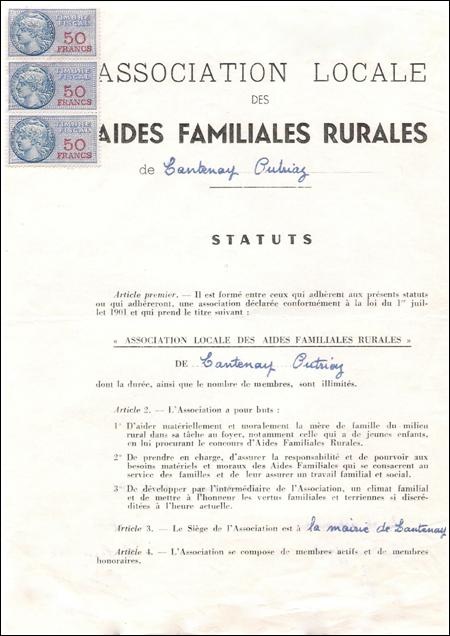 TIMBRE FISCAL
50
FRANCS
TIMBRE FISCAL
50
FRANCS
TIMBRE FISCAL
50
FRANCS
ASSOCIATION LOCALE
DES
AIDES FAMILIALES RURALES
de Lantenay Outriaz
STATUTS
Article premier. — Il est formé entre ceux qui adhèrent aux présents statuts
ou qui adhéreront, une association déclarée conformément à la loi du 1er juil-
let 1901 et qui prend le titre suivant :
« ASSOCIATION LOCALE DES AIDES FAMILIALES RURALES »
DE Lantenay Outriaz
dont la durée, ainsi que le nombre de membres, sont illimités.
Article 2. — L'Association a pour buts :
1° D'aider matériellement et moralement la mère de famille du milieu
rural dans sa tâche au foyer, notamment celle qui a de jeunes enfants,
en lui procurant le concours d'Aides Familiales Rurales.
2° De prendre en charge, d'assurer la responsabilité et de pourvoir aux
besoins matériels et moraux des Aides Familiales qui se consacrent au
service des familles et de leur assurer un travail familial et social.
3° De développer par l'intermédiaire de l'Association, un climat familial
et de mettre à l'honneur les vertus familiales et terriennes si discré-
ditées à l'heure actuelle.
Article 3. — Le Siège de l'Association est à la mairie de Lantenay
Article 4. — L'Association se compose de membres actifs et de membres
honoraires.